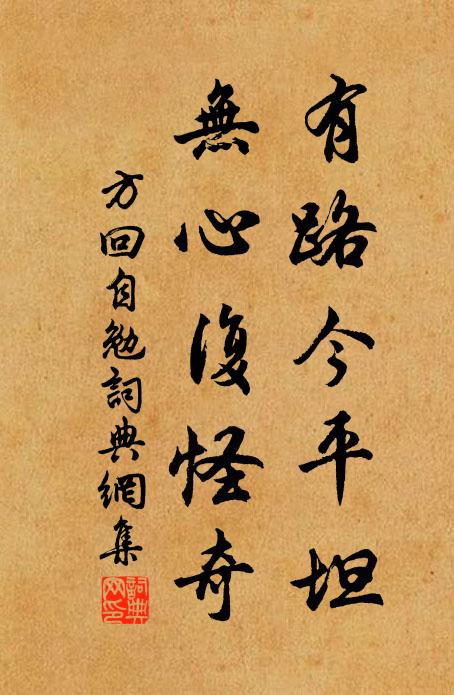 有路今平坦
無心復怪奇
方回自勉詞典網集
詞典網印